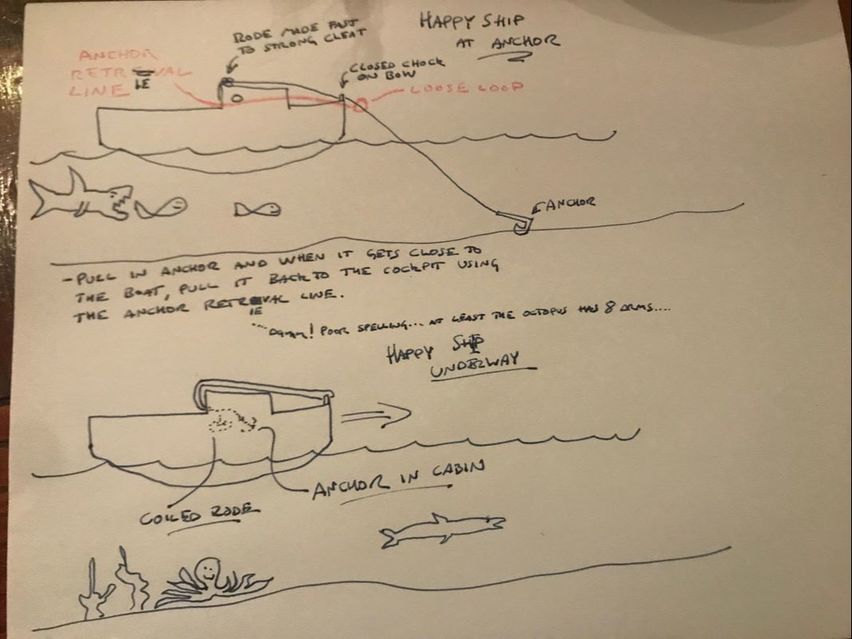 HAPPY SHIP
AT ANCHOR
RODE MADE FAST
TO STRONG CLEAT
CLOSED CHOCK
ON BOW
ANCHOR
RETRIEVAL
LINE
LOOSE LOOP
ANCHOR
- PULL IN ANCHOR AND WHEN IT GETS CLOSE TO
THE BOAT, PULL IT BACK TO THE COCKPIT USING
THE ANCHOR RETRIEVAL LINE.
POOR SPELLING... AT LEAST THE OCTOPUS HAS 8 ARMS....
HAPPY SHIP
UNDERWAY
ANCHOR IN CABIN
COILED RODE